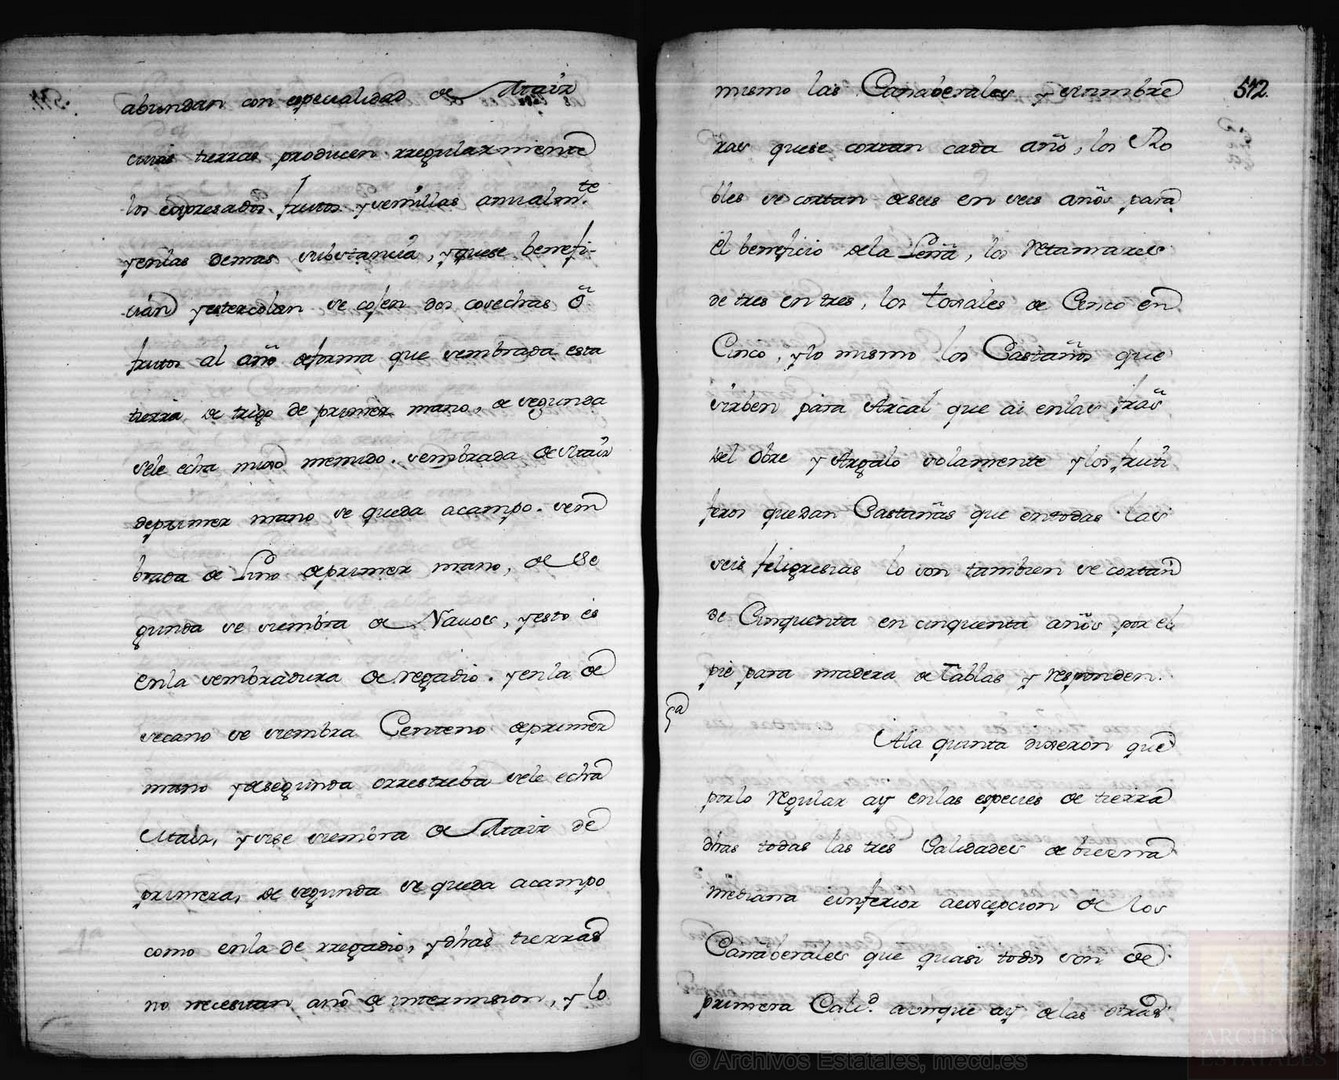 abundan con especialidad de Maiz
cuias tierras producen rregularmente
los expresados frutos y semillas anualmte
yenlas demas substancia, yquese benefi-
cian yestercolan se cojen dos cosechas ō
frutos al año deforma que sembrada esta
tierra de trigo de primer mano, de segunda
sele echa mijo menudo. sembrada de Maiz
deprimer mano se queda acampo. sem
brada de Lino deprimer mano, de Se
gunda se siembra de Navos, yesto és
enla sembradura de regadio. yenla de
secano se siembra Centeno deprimer
mano ydesegunda orrestreba sele echa
Maiz, ysise siembra de Maiz de
primera, de segunda se queda acampo
como enla de rregadio, ydhas tierras
no necesitan año de intermision, y lo
512
mismo las Cañaberales y vimbre
ras quese cortan cada año, los Ro
bles se cortan deseis en seis años para
él beneficio dela Leña, los retamares
de tres en tres, los toxales de Cinco en
Cinco, ylo mismo los Castaños que
sirben para Arcal que ai enlas fras
del Obre y Argalo solamente ylos fruti
feros quedan Castañas que entodas las
seis feligresias lo son tambien se cortan
de Cinquenta en cinquenta años por el
pie para madera de tablas y responden.
5a
Ala quinta dixeron que
porlo regular ay enlas especies de tierra
dhas todas las tres Calidades de buena
mediana einferior aexcepcion de los
Cañaberales que quasi todos son de
primera Calid. aunque ay delas otras
© Archivos Estatales, mecd.es
ARCHIVOS
ESTATALES